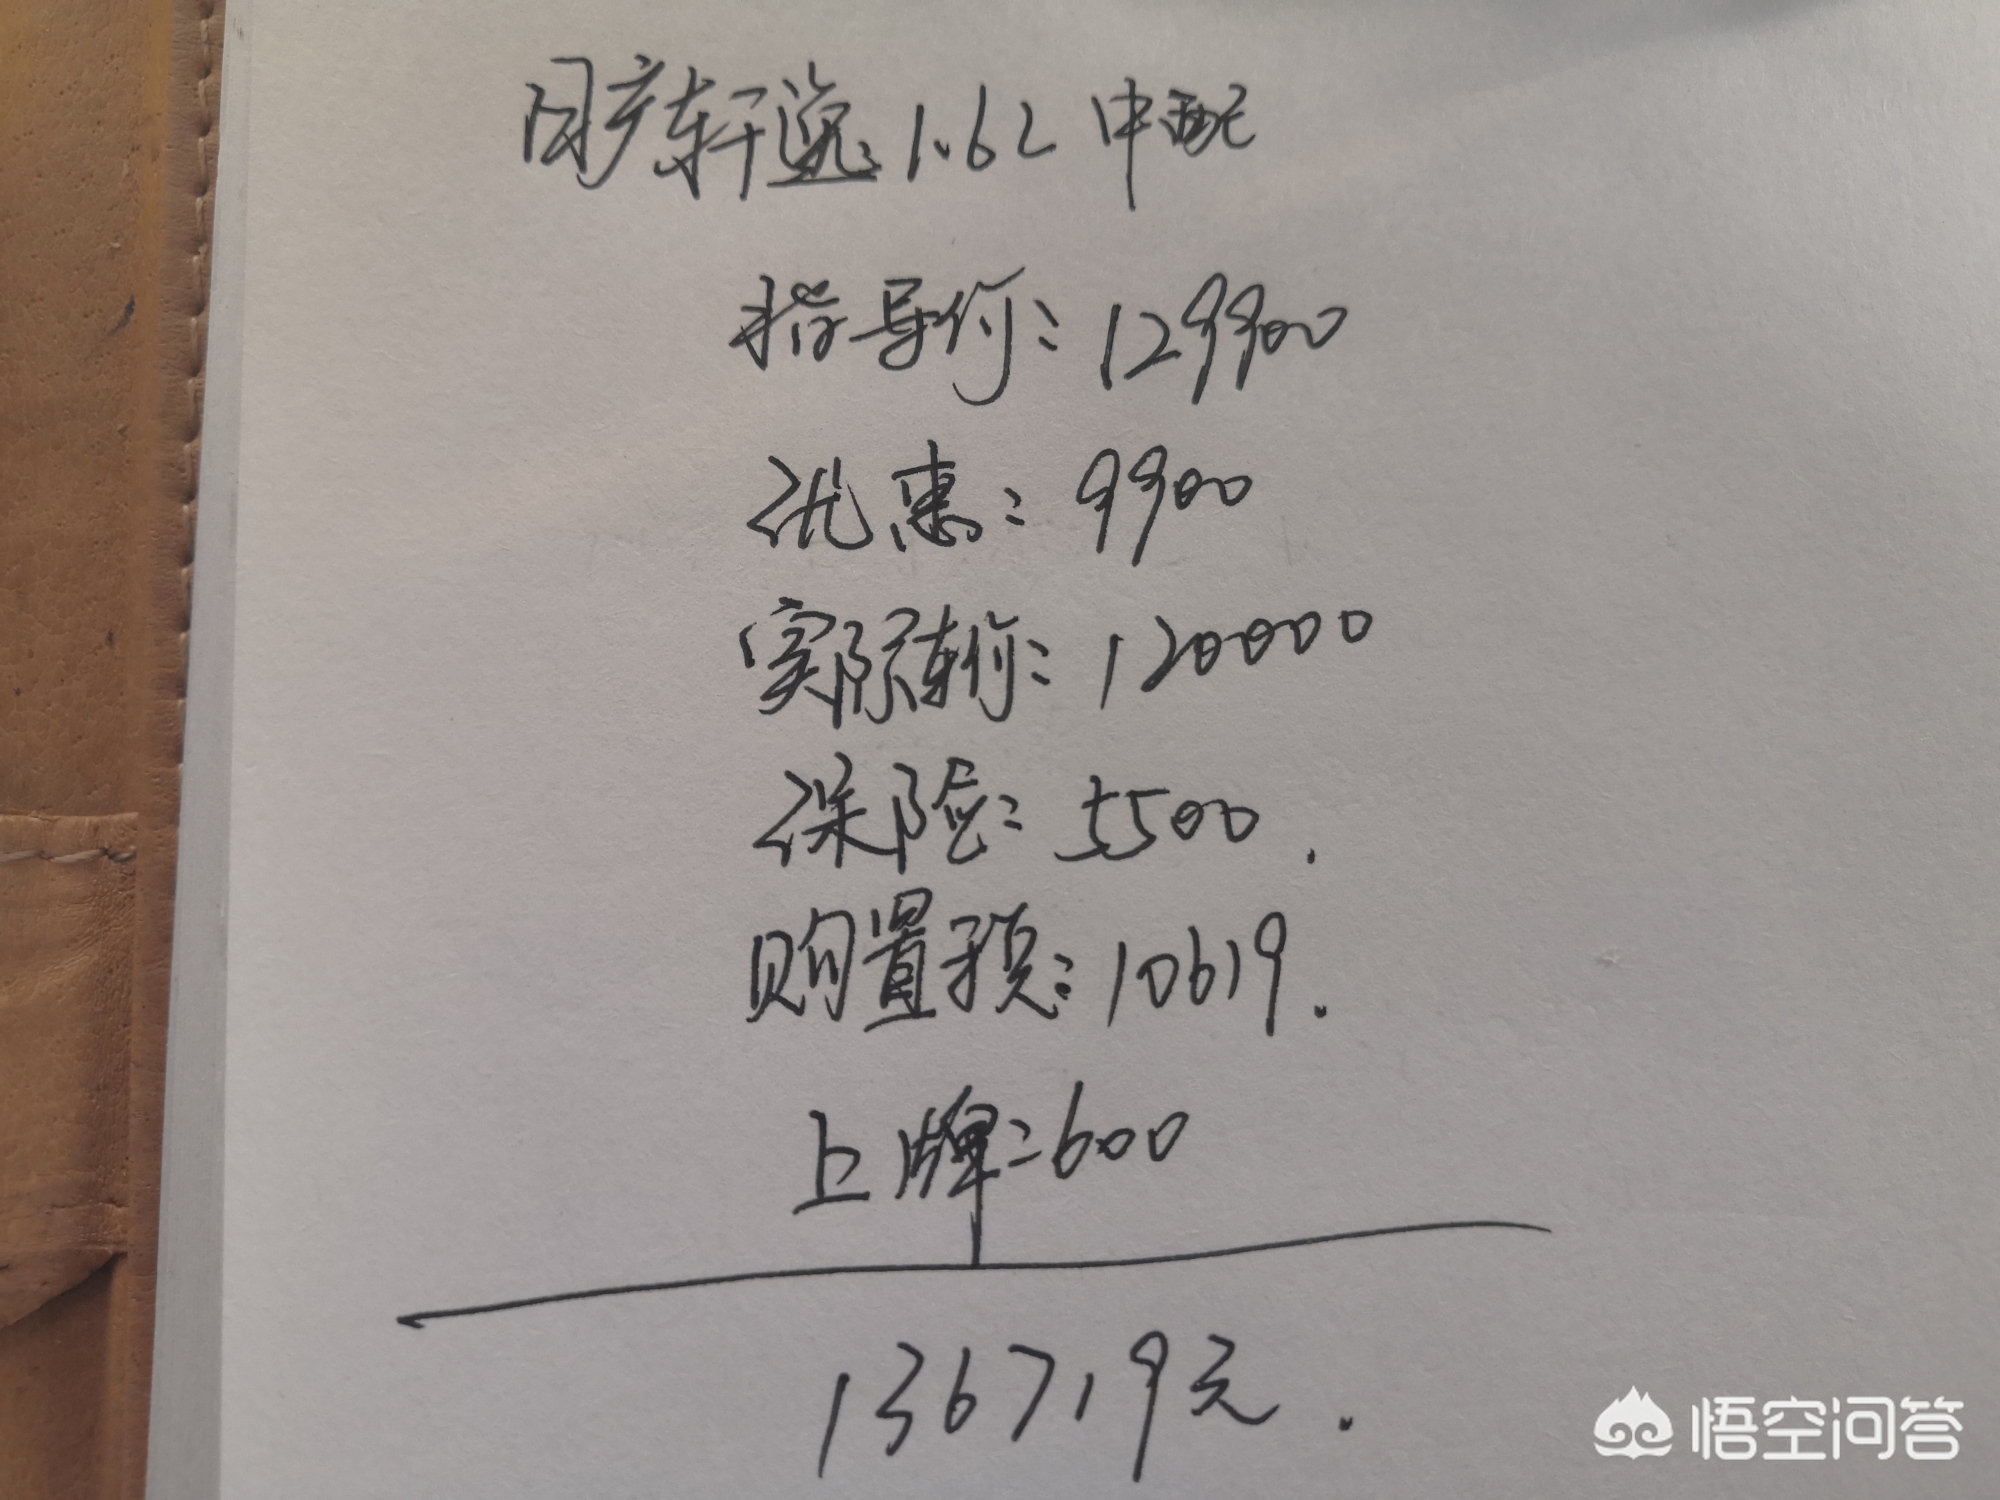 日产轩逸1.6L中配
指导价：129900
优惠：9900
实际车价：120000
保险：5500.
购置税：10619.
上牌：600
136719元.
悟空问答